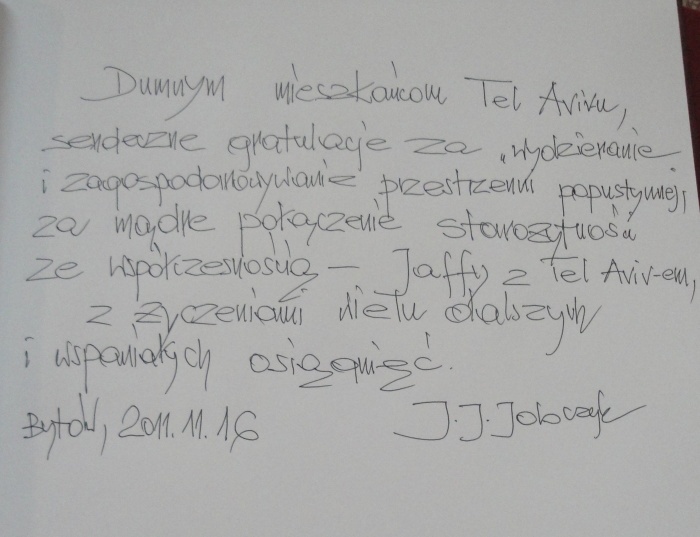 Dumnym mieszkańcom Tel Avivu,
serdeczne gratulacje za „wydzieranie
i zagospodarowywanie przestrzeni popustynnej,
za mądre połączenie starożytności
ze współczesnością – Jaffy z Tel Aviv-em,
z życzeniami wielu dalszych
i wspaniałych osiągnięć.
Bytów, 2011.11.16 J.J.